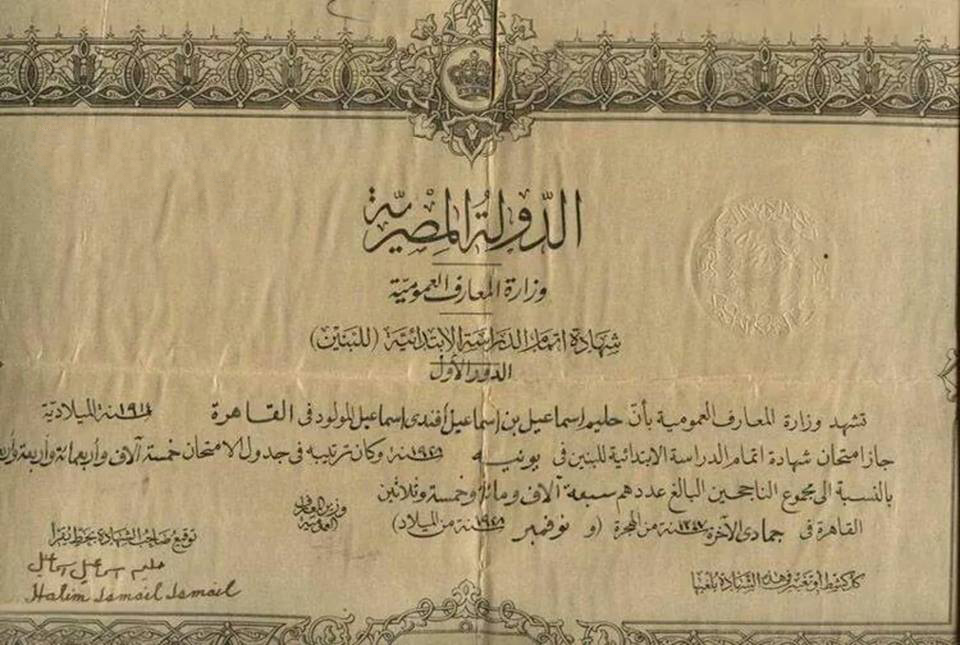 الدّولةُ المصريّة
وزارة المعارف العموميّة
شهادة اتمام الدراسة الابتدائيّة (للبنين)
الدور الأول
تشهد وزارة المعارف العمومية بأنّ حليم إسماعيل بن إسماعيل أفندى إسماعيل المولود فى القاهرة سنة ١٩١٤ الميلاديّة
جاز امتحان شهادة اتمام الدراسة الابتدائية للبنين فى يونيه سنة ١٩٢٨ وكان ترتيبه فى جدول الامتحان خمسة آلاف وأربعمائة وأربعة
بالنسبة الى مجموع الناجحين البالغ عددهم سبعة آلاف ومائة وخمسة وثلاثين
القاهرة فى جمادى الآخرة سنة ١٣٤٧ من الهجرة (و نوفمبر سنة ١٩٢٨ من الميلاد)
وزير المعارف العمومية
توقيع صاحب الشهادة بخط يقرأ
حليم اسماعيل اسماعيل
Halim Ismail Ismail
كل كشط أو تغيير فى هذه الشهادة يلغيها